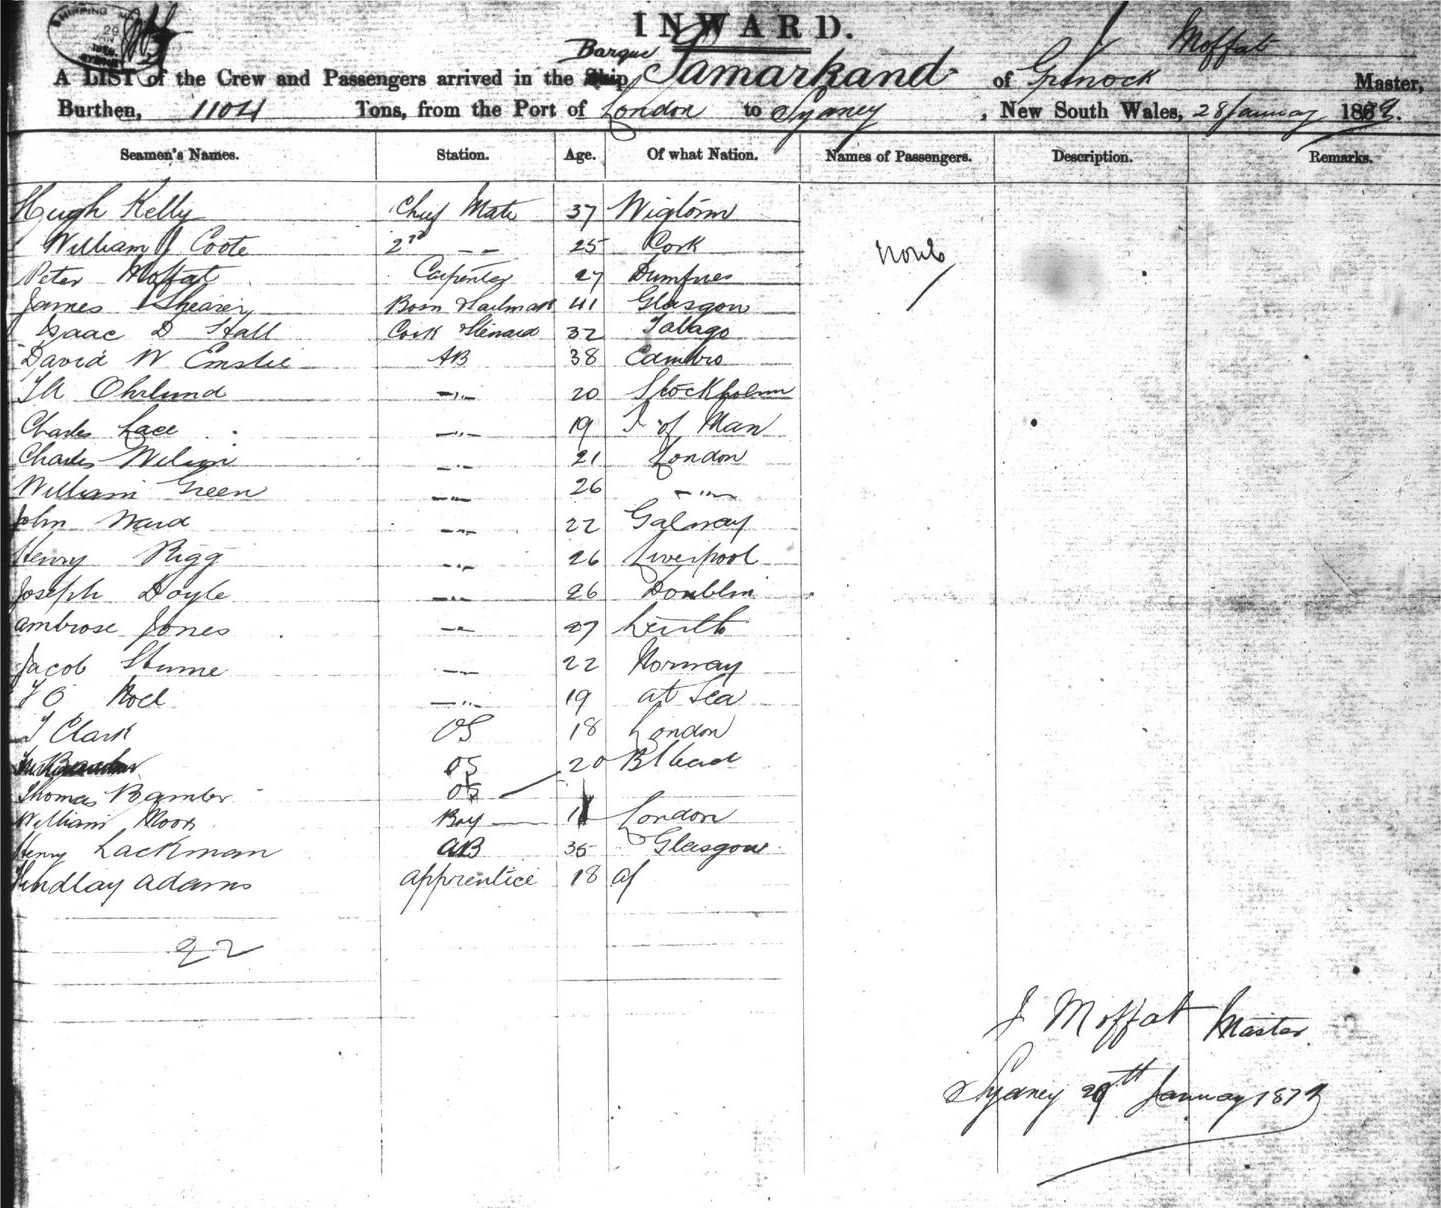 SHIPPING
29
INWARD.
Moffat
Barque
A LIST of the Crew and Passengers arrived in the Ship Samarkand of Grenock Master,
Burthen, 1104 Tons, from the Port of London to Sydney, New South Wales, 28 January 1879.
Seamen's Names. Station. Age. Of what Nation. Names of Passengers. Description. Remarks.
Hugh Kelly Chief Mate 37 Wigtown
William J Coote 2nd -- 25 Cork None
Peter Moffat Carpenter 27 Dumfries
James Shearer Bosn & Sailmak 41 Glasgow
Isaac D Hall Cook & Steward 32 Tabago
David W Emslie AB 38
Ohrlund -"- 20 Stockholm
Charles Lace -"- 19 I of Man
Charles Wilson -"- 21 London
William Green -"- 26 -"-
John Ward -"- 22 Galway
Henry Rigg -"- 26 Liverpool
Joseph Doyle -"- 26 Doublin
Ambrose Jones -"- 27 Leith
Jacob Sturne -"- 22 Norway
Noel -"- 19 at Sea
T Clark OS 18 London
OS 20 B'head
Thomas Bamber OS
William Moor Boy London
Henry Lackman AB 35 Glasgow
Findlay Adams apprentice 18
22
J Moffat Master
Sydney 29th January 1879